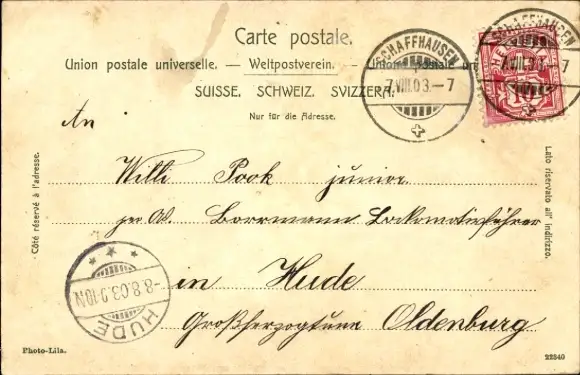 Carte postale.
Union postale universelle. — Weltpostverein. — Unione postale un
SUISSE. SCHWEIZ. SVIZZERA.
Nur für die Adresse.
SCHAFFHAUSEN
7.VIII.03.–7
SCHAFFHAUSEN
7.VIII.03.–7
10
An
Willi Pook junior.
per Ad. Borrmann Lockomotivführer
in Hude
Großherzogtum Oldenburg
Côté réservé à l'adresse.
Lato riservato all' indirizzo.
HUDE
-8.8.03.9-10N
Photo-Lila.
22840